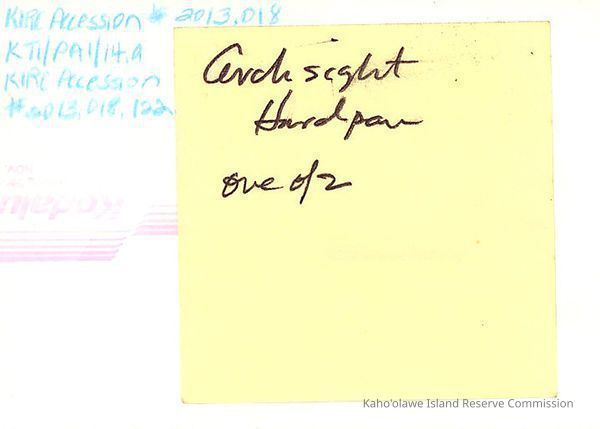 KIRC Accession # 2013.018
KTI/PAI/14.A
KIRC Accession
#2013.018.122
Arch sight
Hardpan
one of 2
Kodalu
Kaho'olawe Island Reserve Commission